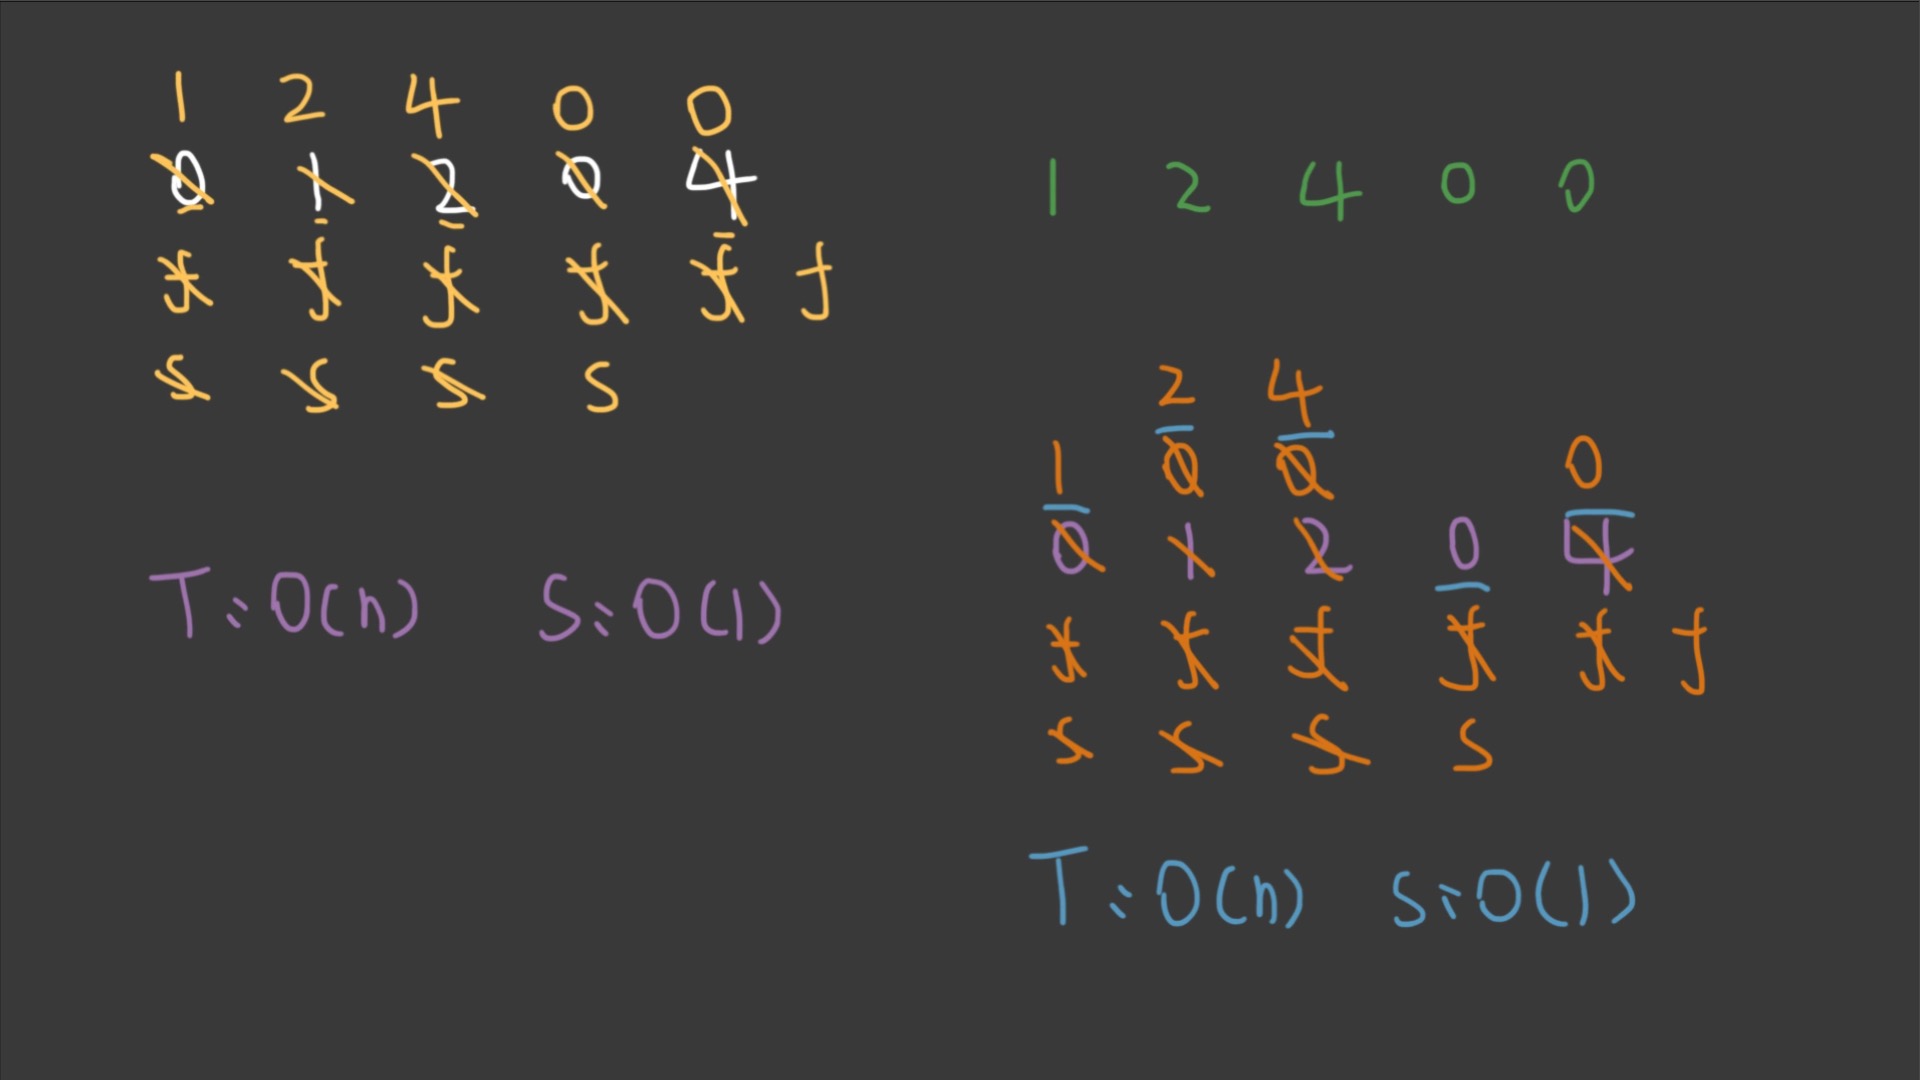 1 2 4 0 0
0 1 2 0 4
f f f f f f
s s s s
T: O(n) S: O(1)
1 2 4 0 0
2 4
1 0 0 0
0 1 2 0 4
f f f f f f
s s s s
T: O(n) S: O(1)